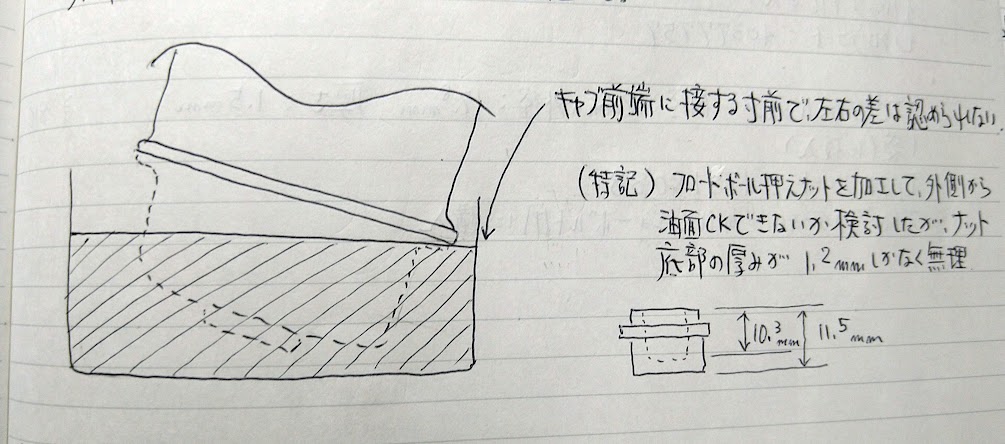 キャブ前端に接する寸前で、左右の差は認められない
(特記) フロートボール押えナットを加工して、外側から
油面CKできないか検討したが、ナット
底部の厚みが 1.2mmしかなく無理
10.3mm 11.5mm